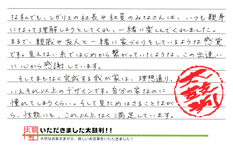 なみでも、レガリスの社長や社員のみなさんは、いつも親身
になって理解しようとしてくれ、一緒に楽しんでくれました。
まるで、親戚や友人と一緒に家づくりをしているような感覚
です。見えない糸ではじめから繋がっていたような、この出逢い
に心から感謝しています。
そしてまもなく完成する我が家は、理想通り、
いえそれ以上のデザインです。自分の家なのに
憧れてしまうくらい。そして見ためはさることなが
ら、性能にも、これ以上なく満足しています。
大満足
大鼓判
いただきました大鼓判!!
大切なお客さまから、嬉しいお言葉をいただきました!